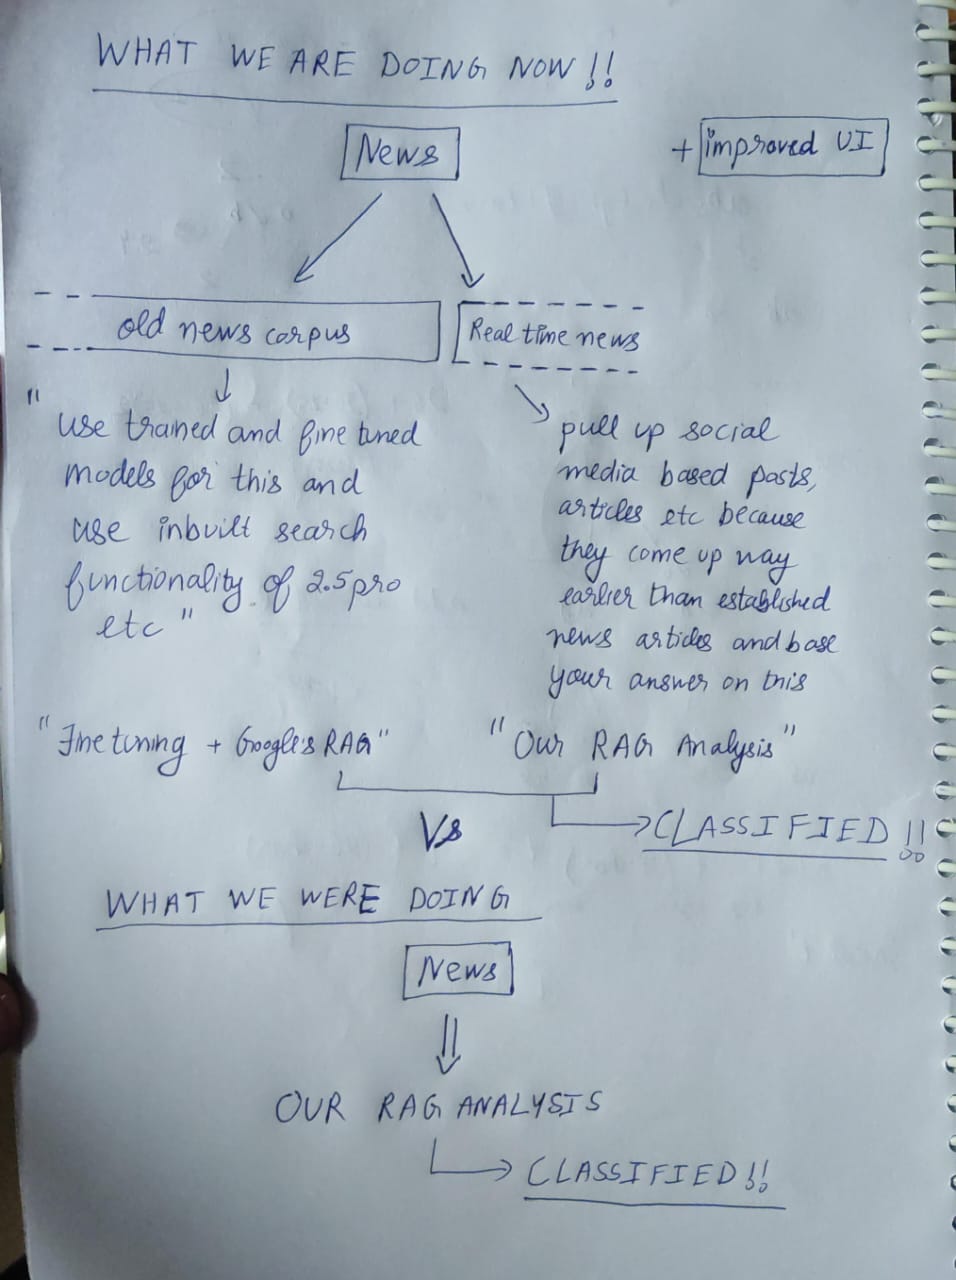 WHAT WE ARE DOING NOW!!
News
+ improved UI
old news corpus
Real time news
"use trained and fine tuned
models for this and
use inbuilt search
functionality of 2.5pro
etc"
pull up social
media based posts,
articles etc because
they come up way
earlier than established
news articles and base
your answer on this
"Fine tuning + Google's RAG"
"Our RAG Analysis"
Vs
CLASSIFIED!!
WHAT WE WERE DOING
News
OUR RAG ANALYSIS
CLASSIFIED!!